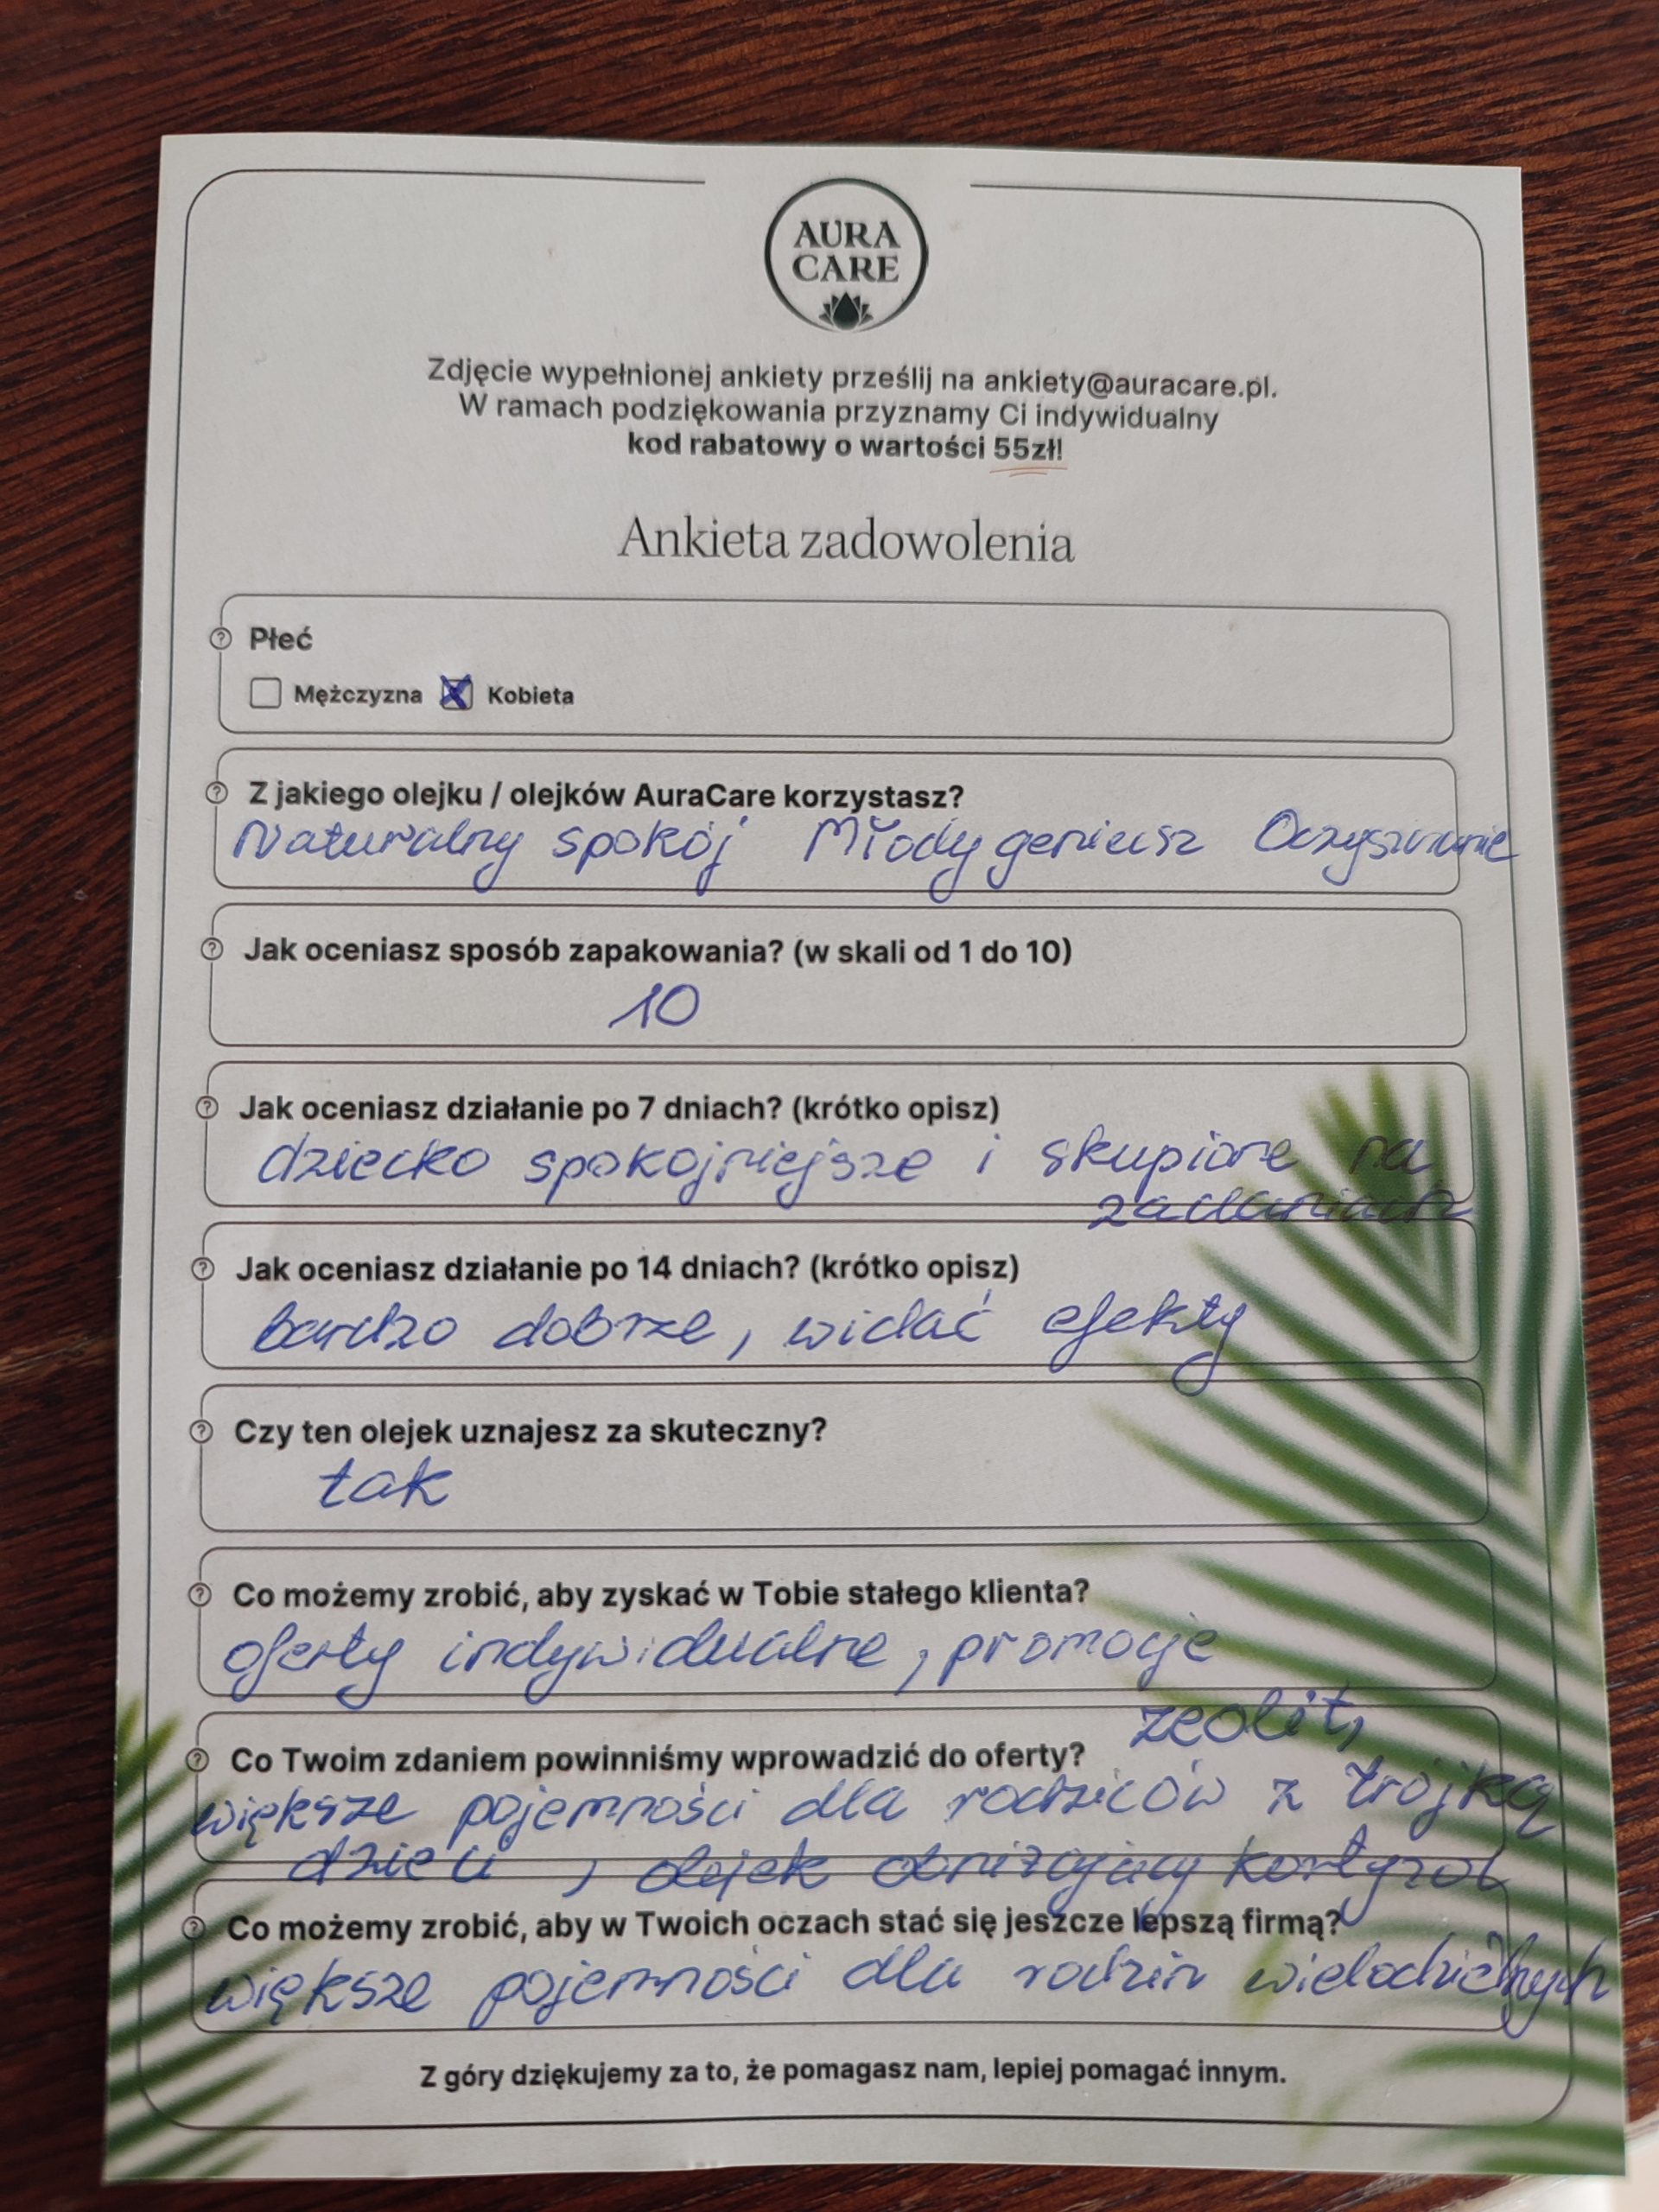 AURA
CARE
Zdjęcie wypełnionej ankiety prześlij na ankiety@auracare.pl.
W ramach podziękowania przyznamy Ci indywidualny
kod rabatowy o wartości 55zł!
Ankieta zadowolenia
Płeć
Mężczyzna Kobieta
Z jakiego olejku / olejków AuraCare korzystasz?
Naturalny spokój Młody geniusz Oczyszczanie
Jak oceniasz sposób zapakowania? (w skali od 1 do 10)
10
Jak oceniasz działanie po 7 dniach? (krótko opisz)
dziecko spokojniejsze i skupione na
zadaniach
Jak oceniasz działanie po 14 dniach? (krótko opisz)
bardzo dobrze, widać efekty
Czy ten olejek uznajesz za skuteczny?
tak
Co możemy zrobić, aby zyskać w Tobie stałego klienta?
oferty indywidualne, promocje
zeolit,
Co Twoim zdaniem powinniśmy wprowadzić do oferty?
większe pojemności dla rodziców z trójką
dzieci, olejek obniżający kortyzol
Co możemy zrobić, aby w Twoich oczach stać się jeszcze lepszą firmą?
większe pojemności dla rodzin wielodzietnych
Z góry dziękujemy za to, że pomagasz nam, lepiej pomagać innym.